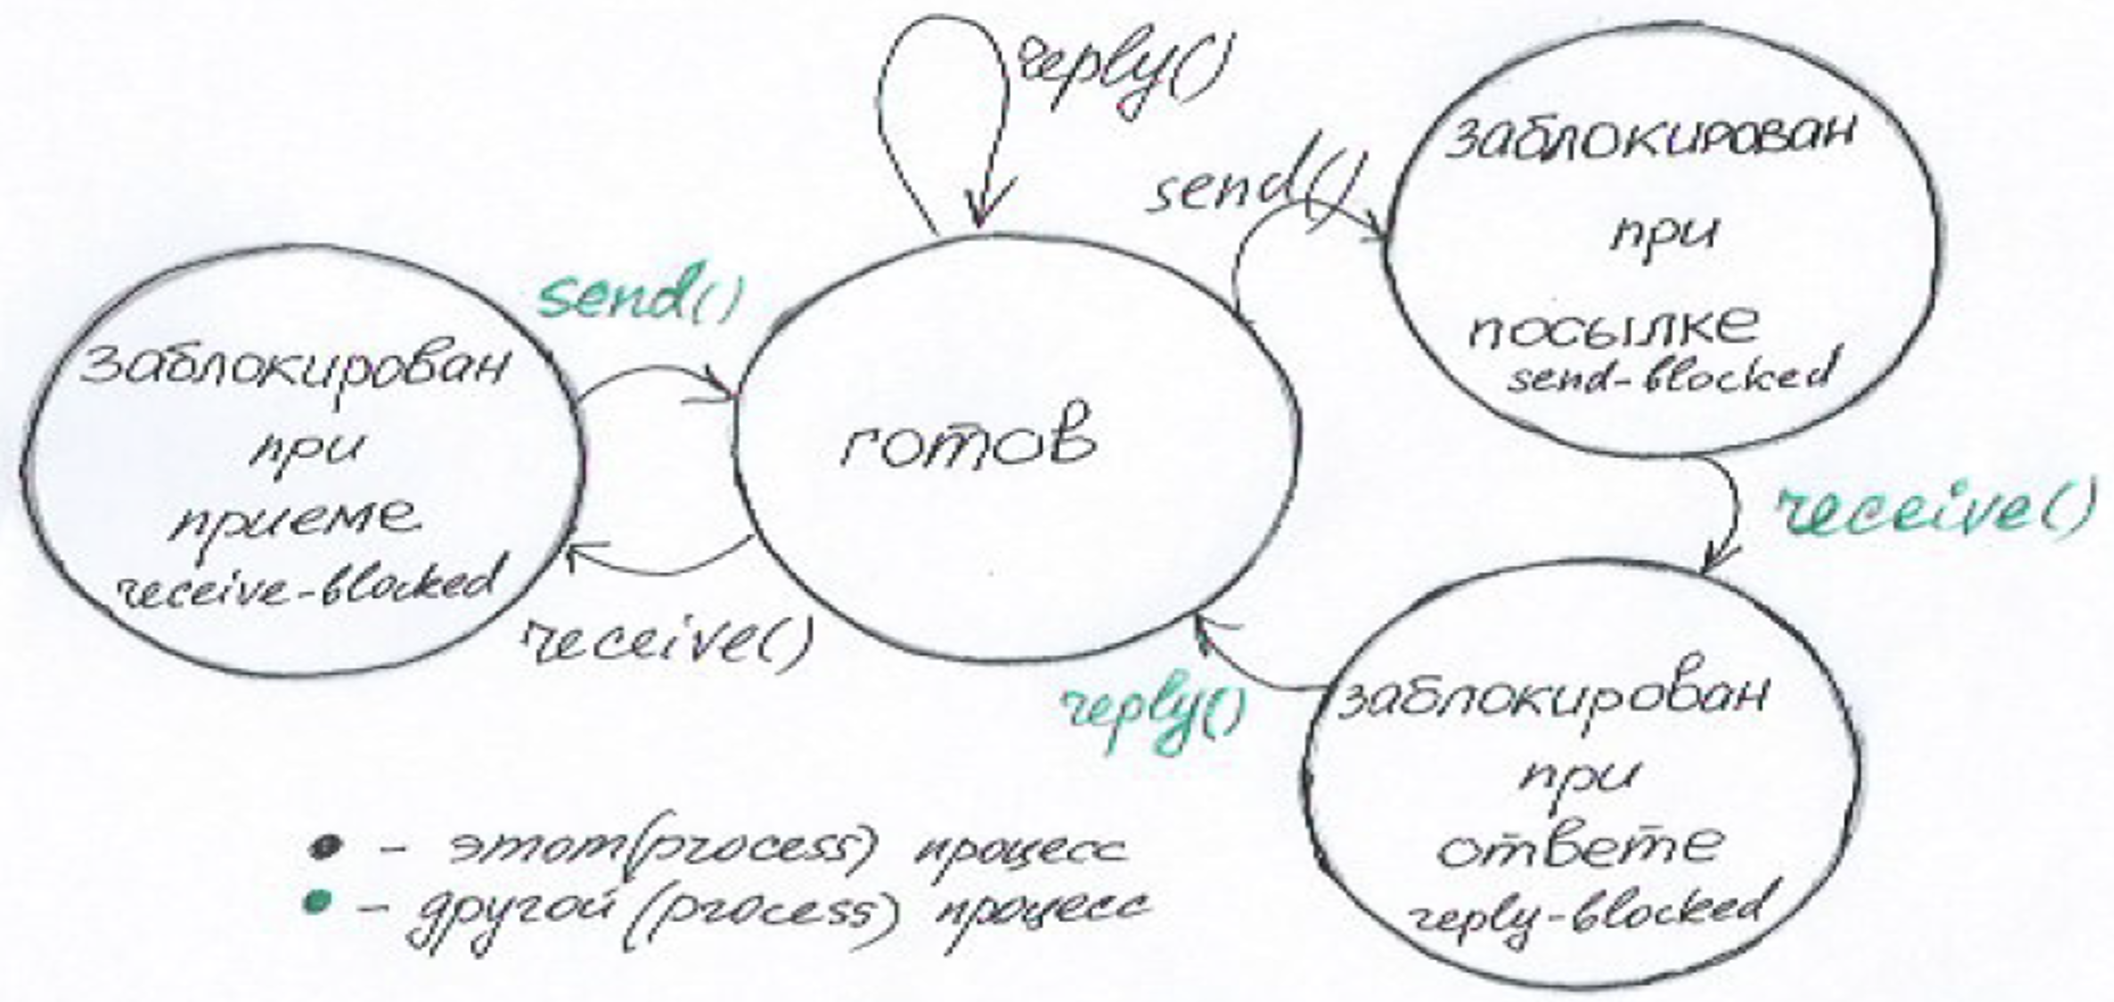 reply()
send()
заблокирован
при
посылке
send-blocked
send()
заблокирован
при
приеме
receive-blocked
готов
receive()
receive()
reply()
заблокирован
при
ответе
reply-blocked
• - этот(process) процесс
• - другой (process) процесс